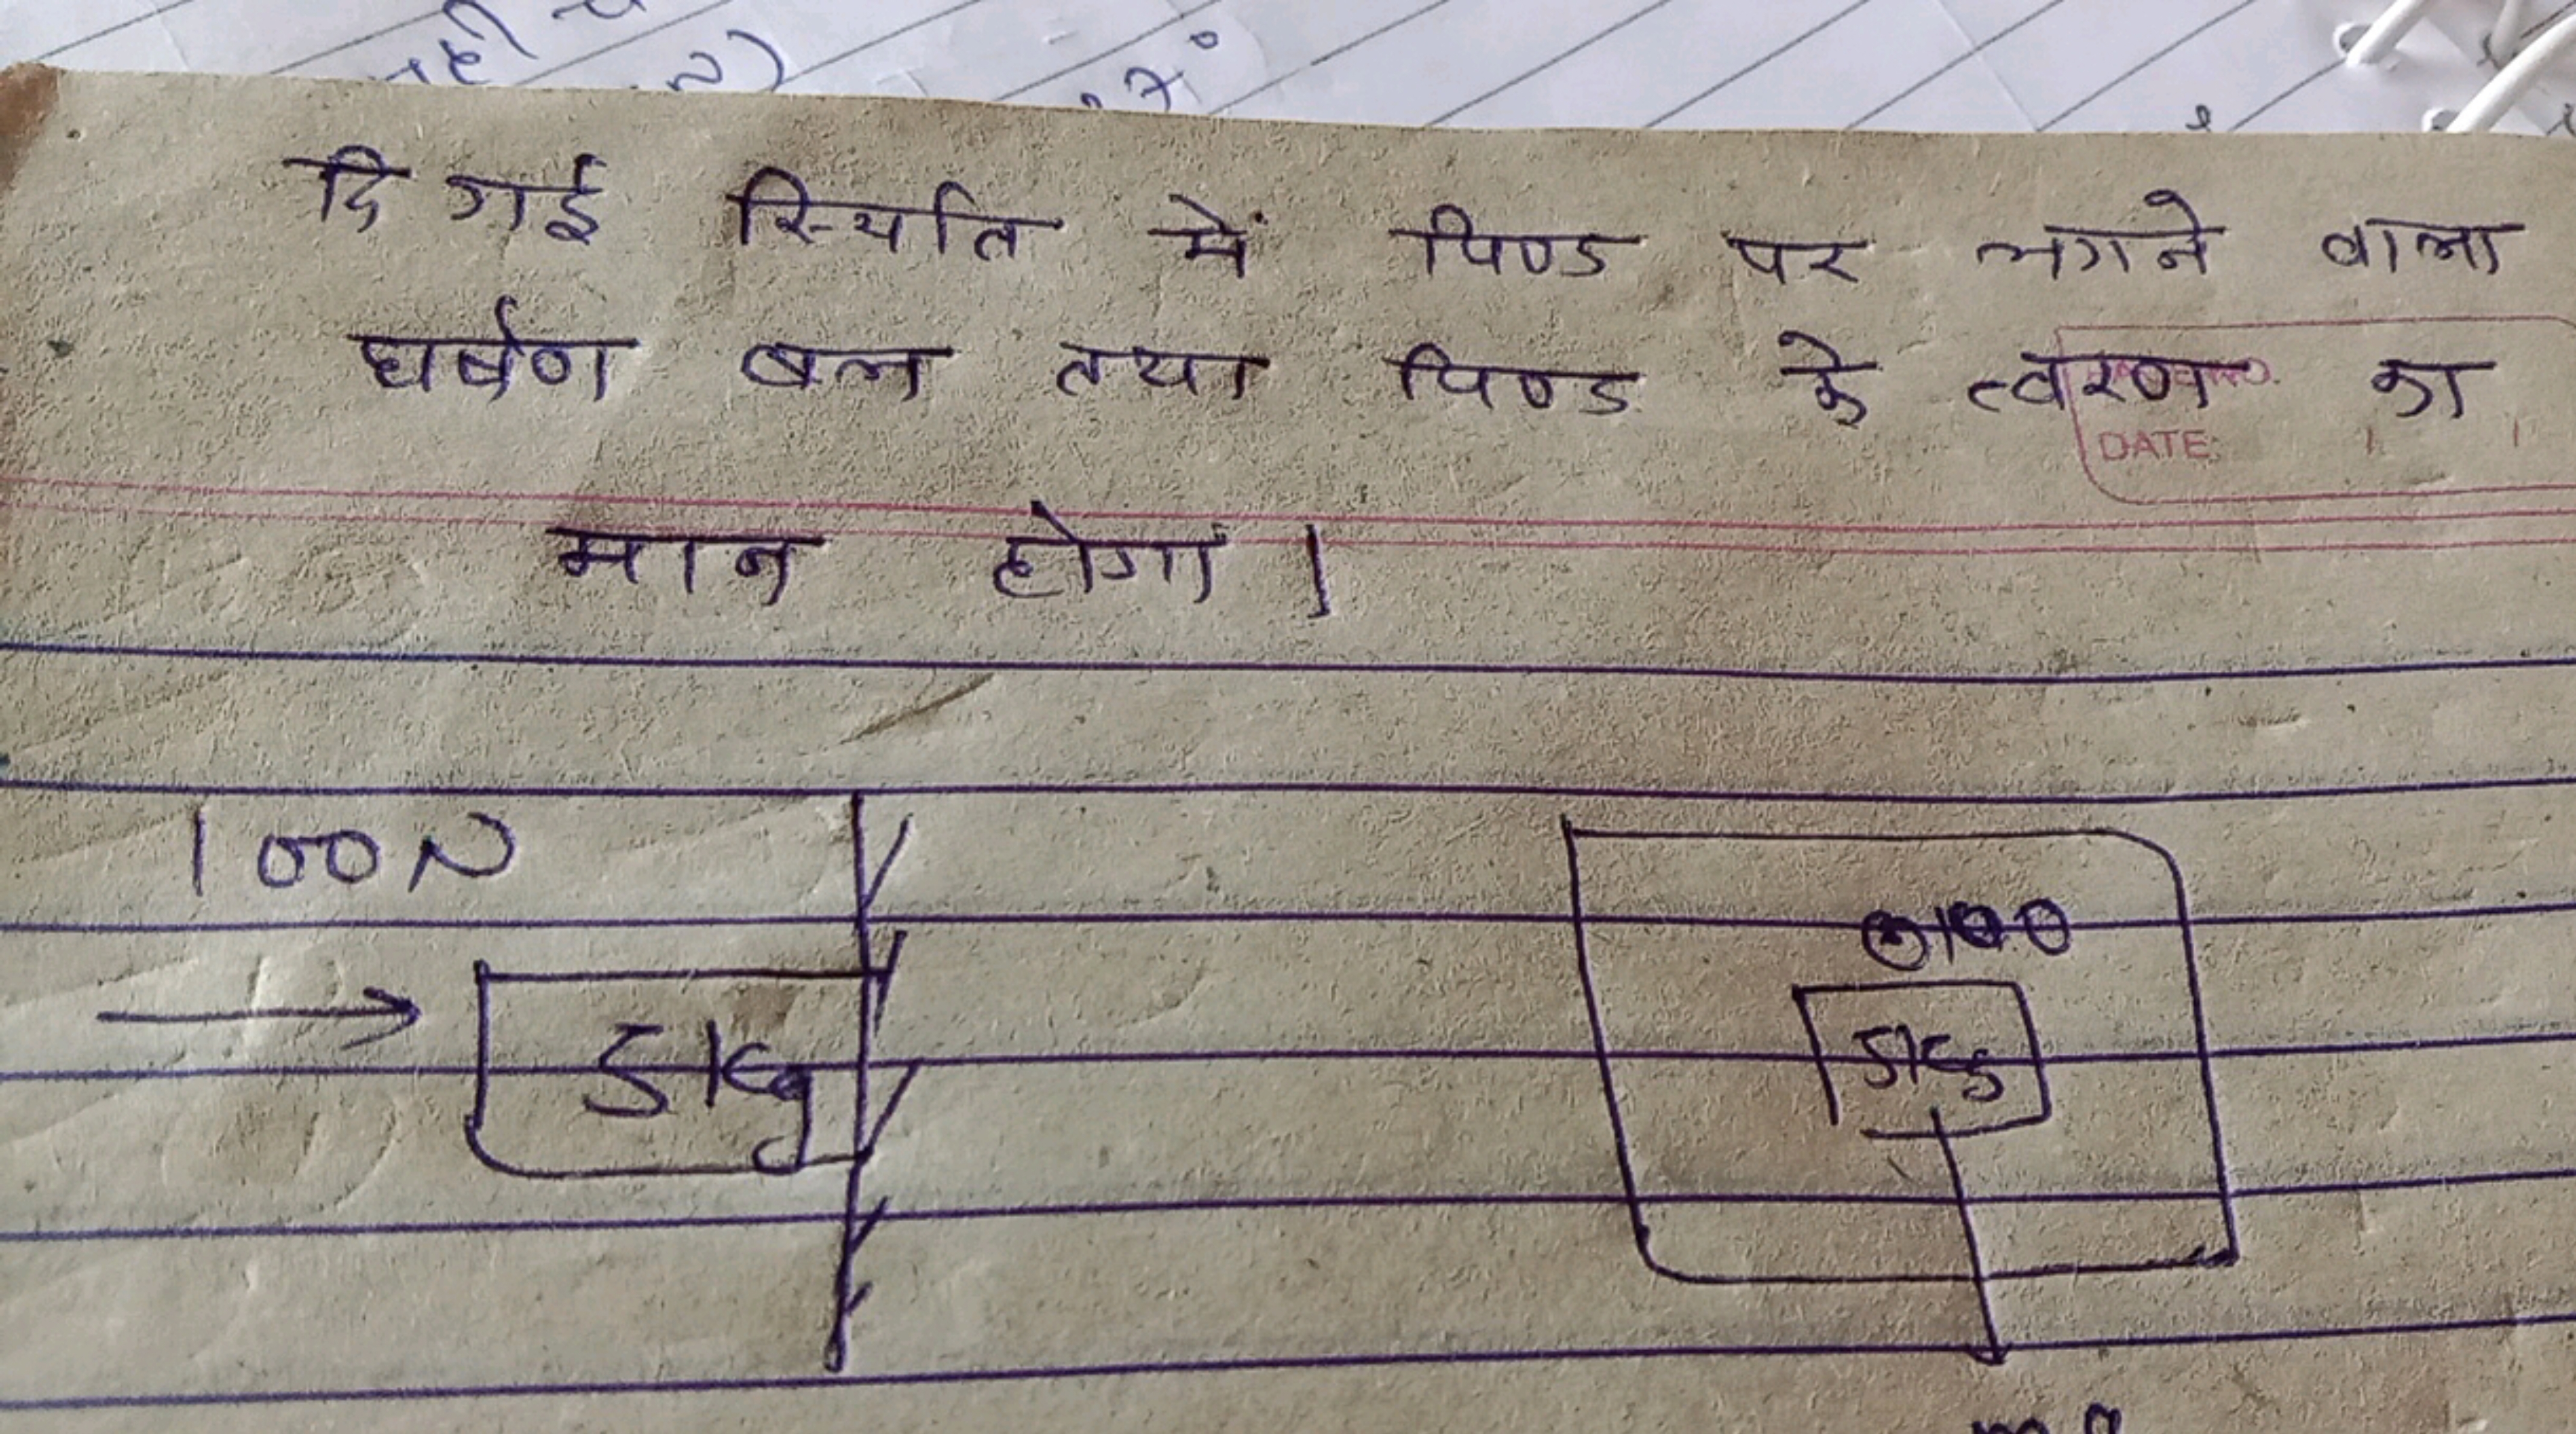 दि गई स्थिति में पिण्ड पर लगने वाला
घर्षण बल तथा पिण्ड के त्वरण का
DATE:
मान होगा।
100N
5kg
5kg
mg